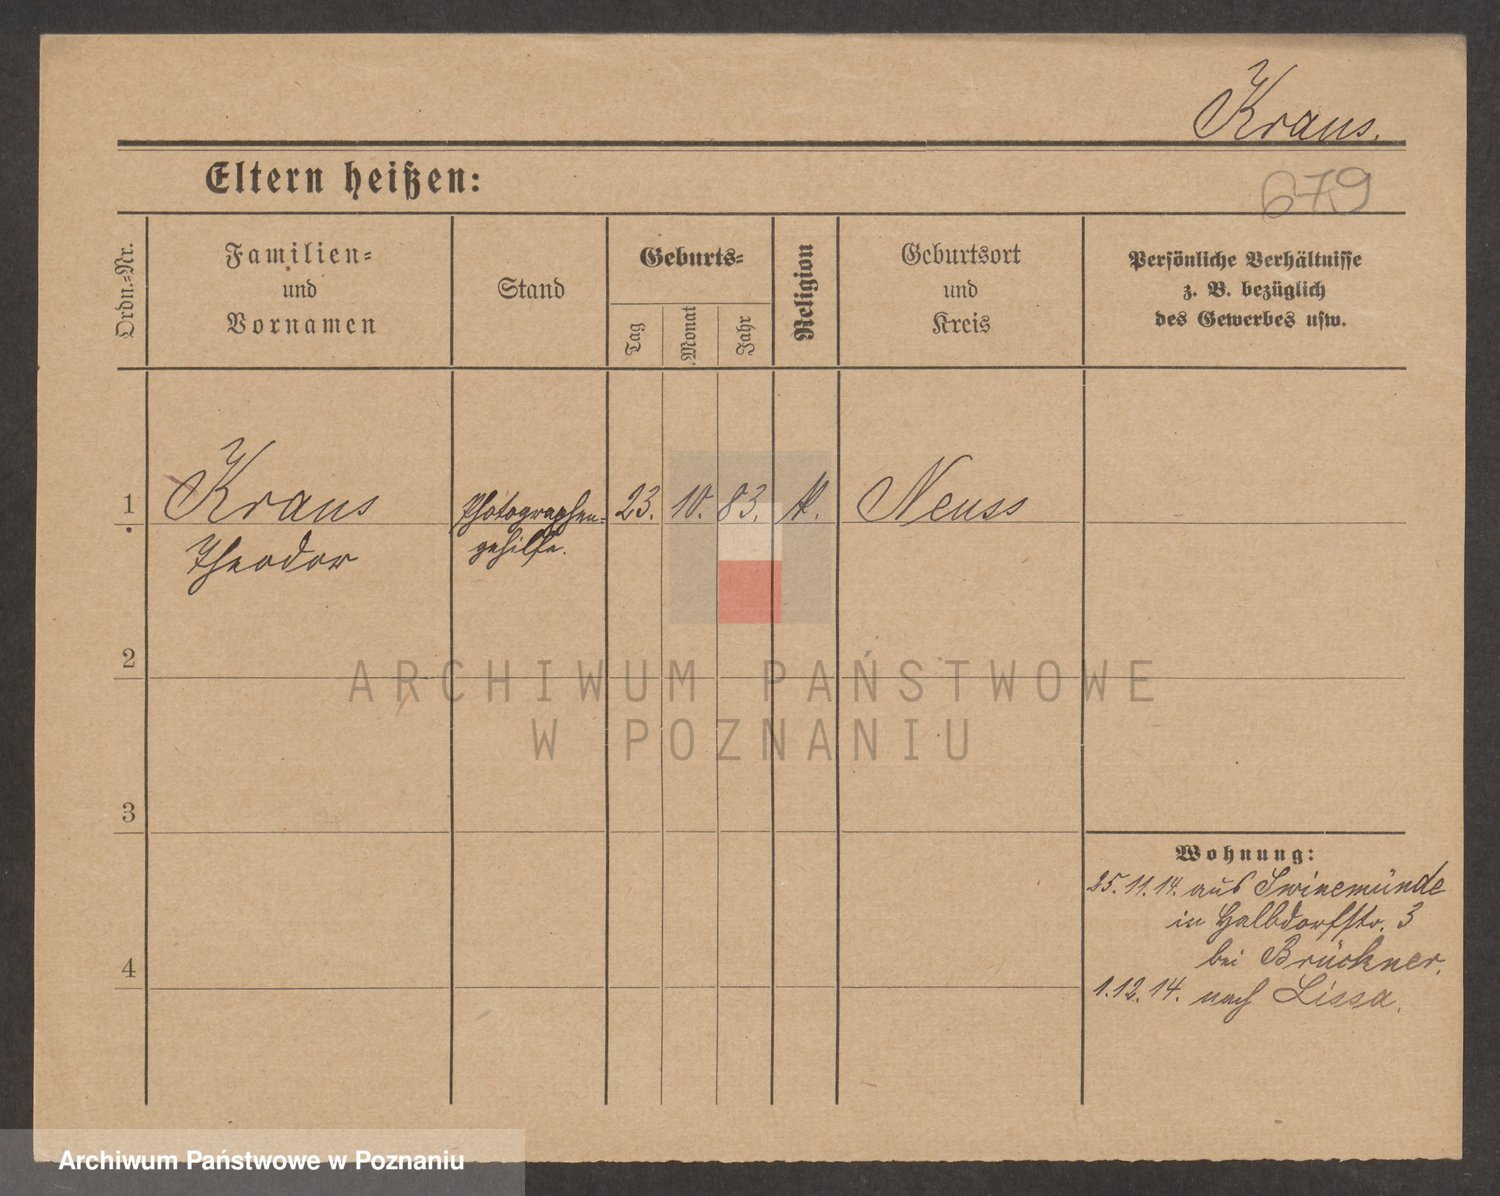 Kraus.
Eltern heißen:
679
Ordn.-Nr.
Familien-
und
Vornamen
Stand
Geburts-
Tag
Monat
Jahr
Religion
Geburtsort
und
Kreis
Persönliche Verhältnisse
z. B. bezüglich
des Gewerbes usw.
1
Kraus
Theodor
Photographen-
gehilfe.
23.
10.
83.
k.
Neuss
2
ARCHIWUM PAŃSTWOWE
W POZNANIU
3
Wohnung:
25.11.14. aus Swinemünde
in Halbdorfstr. 3
bei Brückner.
4
1.12.14. nach Lissa.
Archiwum Państwowe w Poznaniu